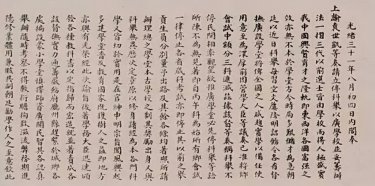 光緒三十一年八月初四日內閣奉
上諭袁世凱等奏請立停科舉以廣學校並妥籌辦
法一摺三代以前選士皆由學校而得人極盛實
我中國興賢育才之隆軌即東西洋各國富強之
效亦無不本於學堂方今時局多艱儲才為急朝
廷以近日科舉每習空文屢降明詔飭令各督
撫廣設學堂將俾全國之人咸趨實學以備任使
用意至為深厚前因管學大臣等議奏已准將鄉
會試中額分三科遞減茲據該督等奏稱科舉不
停民間相率觀望推廣學堂必先停科舉等語
所陳不為無見著即自丙午科為始所有鄉會試
一律停止各省歲科考試亦即停止其以前之舉
貢生員分別量予出路及其餘各條均著照所請
辦理總之學堂本古學校之制其獎勵出身又與
科舉無異歷次定章原以修身讀書為本各門科
學又皆切於實用是在官紳申明宗旨聞風興起
多建學堂普及教育國家既獲樹人之益即地方
亦與有光榮經此次諭旨後著學務大臣迅速頒
發各種教科書以定指歸而宏造就並著
責成各該督撫實力通籌嚴飭府廳州縣趕緊於城鄉各
處遍設蒙小學堂慎選師資廣開民智其各認真
舉辦隨時考察不得敷衍瞻徇致滋流弊務期進
德修業體用兼賅共副朝廷勸學作人之至意欽此